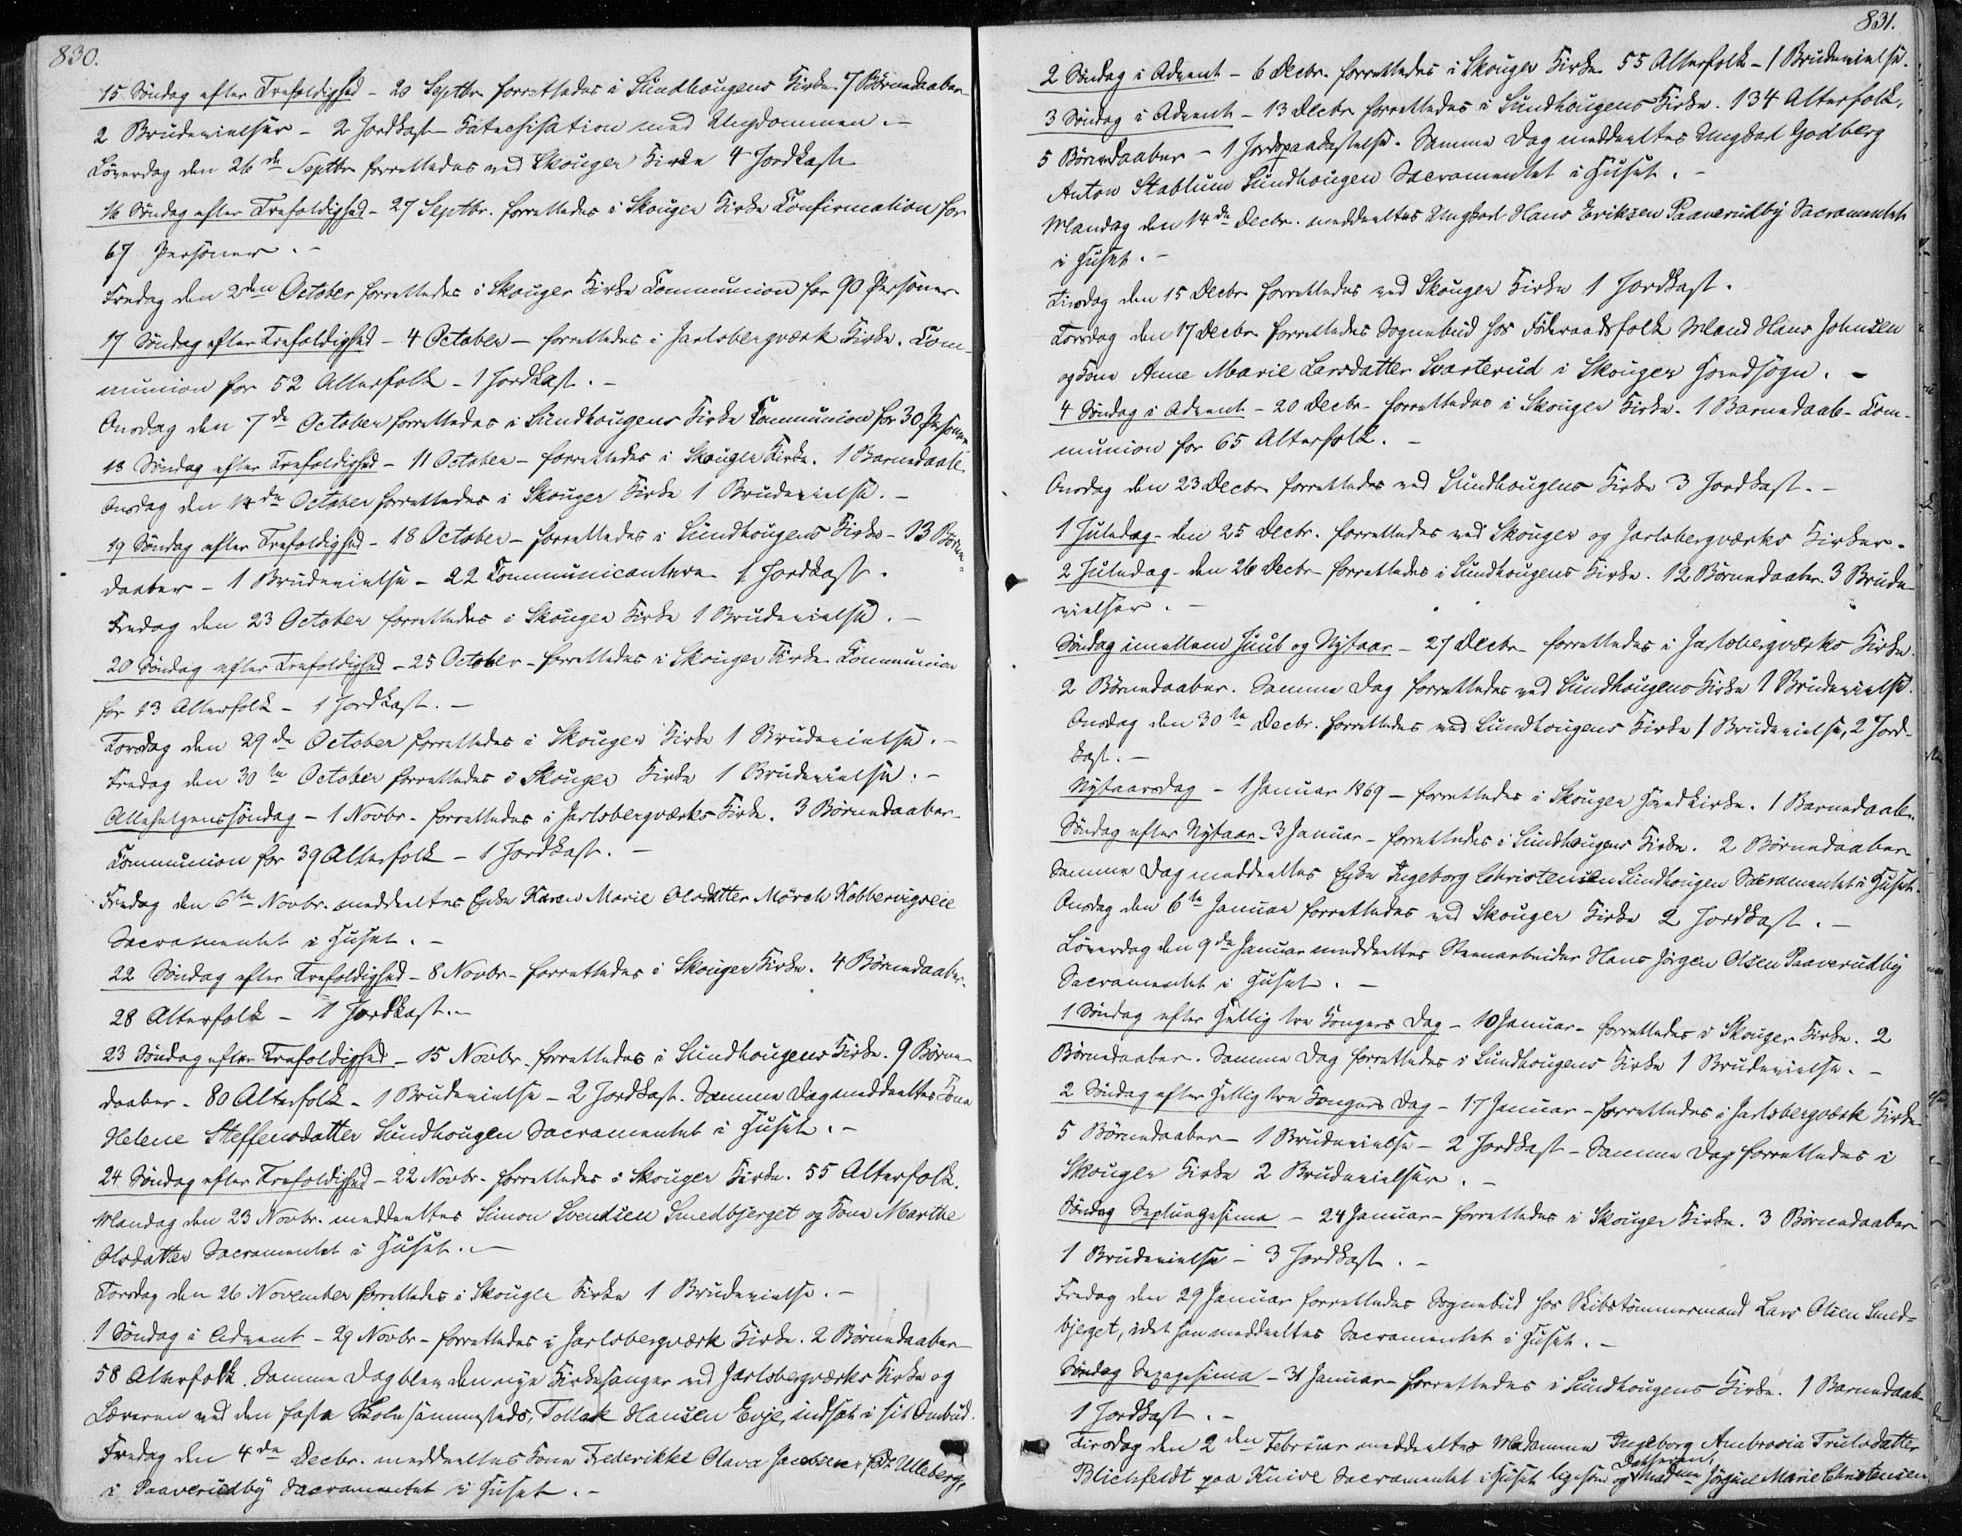 830.
15 Søndag efter Trefoldighed - 20 Septbr forrettedes i Sundhougens Kirke. 7 Børnedaaber
2 Brudevielser - 2 Jordkast Katechisation med Ungdommen. -
Løverdag den 26de Septbr forrettedes ved Skouger Kirke 4 Jordkast
16 Søndag efter Trefoldighed - 27 Septbr. forrettedes i Skouger Kirke Confirmation for
67 Personer. -
Fredag den 2den October forrettedes i Skouger Kirke Communion for 90 Personer
17 Søndag efter Trefoldighed - 4 October - forrettedes i Jarlsbergværk Kirke. Com-
munion for 52 Alterfolk - 1 Jordkast. -
Onsdag den 7de October forrettedes i Sundhougens Kirke Communion for 30 Personer
18 Søndag efter Trefoldighed - 11 October - forrettedes i Skouger Kirke. 1 Barnedaab.
Onsdag den 14de October forrettedes i Skouger Kirke 1 Brudevielse. -
19 Søndag efter Trefoldighed - 18 October - forrettedes i Sundhougens Kirke - 13 Børne-
daaber - 1 Brudevielse - 22 Communicantere 1 Jordkast.
Fredag den 23 October forrettedes i Skouger Kirke 1 Brudevielse. -
20 Søndag efter Trefoldighed - 25 October - forrettedes i Skouger Kirke Communion
for 13 Alterfolk - 1 Jordkast. -
Torsdag den 29de October forrettedes i Skouger Kirke 1 Brudevielse. -
Fredag den 30te October forrettedes i Skouger Kirke 1 Brudevielse. -
Allehelgenssøndag - 1 Novbr - forrettedes i Jarlsbergværks Kirke. 3 Børnedaaber -
Communion for 39 Alterfolk - 1 Jordkast. -
Fredag den 6te Novbr. meddeeltes Enke Karen Marie Olsdatter Mörch Kobbervigreie
Sacramentet i Huset. -
22 Søndag efter Trefoldighed - 8 Novbr - forrettedes i Skouger Kirke. 4 Børnedaaber.
28 Alterfolk - 1 Jordkast. -
23 Søndag efter Trefoldighed - 15 Novbr - forrettedes i Sundhougens Kirke. 9 Børne-
daaber - 80 Alterfolk - 1 Brudevielse - 2 Jordkast. Samme Dag meddeeltes Kone
Helene Steffensdatter Sundhougen Sacramentet i Huset. -
24 Søndag efter Trefoldighed - 22 Novbr - forrettedes i Skouger Kirke. 55 Alterfolk.
Mandag den 23 Novbr. meddeeltes Simon Svendsen Smedbjerget og Kone Marthe
Olsdatter Sacramentet i Huset. -
Torsdag den 26 November forrettedes i Skouger Kirke 1 Brudevielse. -
1 Søndag i Advent - 29 Novbr - forrettedes i Jarlsbergværk Kirke. 2 Børnedaaber
58 Alterfolk. Samme Dag blev den nye Kirkesanger ved Jarlsbergværks Kirke og
Læreren ved den faste Skole sammesteds, Tollak Hansen Evje, indsat i sit Ombud.
Fredag den 4de Decbr. meddeeltes Kone Frederikke Olava Jansen, født Ulleberg,
i Paaverudby Sacramentet i Huset. -
831.
2 Søndag i Advent - 6 Decbr. forrettedes i Skouger Kirke 55 Alterfolk - 1 Brudevielse.
3 Søndag i Advent - 13 Decbr forrettedes i Sundhougens Kirke. 134 Alterfolk,
5 Børnedaaber - 1 Jordpaakastelse. Samme Dag meddeeltes Ungkarl Godberg
Anton Stablum Sundhougen Sacramentet i Huset. -
Mandag den 14de Decbr. meddeeltes Ungkarl Hans Eriksen Paaverudby Sacramentet
i Huset. -
Tirsdag den 15 Decbr forrettedes ved Skouger Kirke 1 Jordkast.
Torsdag den 17 Decbr forrettedes Sognebud hos Föderaadsfolk Mand Hans Johnsen
og Kone Anne Marie Larsdatter Svarterud i Skouger Hovedsogn. -
4 Søndag i Advent - 20 Decbr - forrettedes i Skouger Kirke. 1 Barnedaab - Com-
munion for 65 Alterfolk. -
Onsdag den 23 Decbr forrettedes ved Sundhougens Kirke 3 Jordkast. -
1 Juledag - den 25 Decbr. forrettedes ved Skouger og Jarlsbergværks Kirker.
2 Juledag - den 26 Decbr forrettedes i Sundhougens Kirke. 12 Børnedaaber 3 Brude-
vielser. -
Søndag imellem Juul og Nytaar - 27 Decbr forrettedes i Jarlsbergværks Kirke.
2 Børnedaaber. Samme Dag forrettedes ved Sundhougens Kirke 1 Brudevielse.
Onsdag den 30te Decbr. forrettedes ved Sundhougens Kirke 1 Brudevielse, 2 Jord-
kast. -
Nytaarsdag - 1 Januar 1869 - forrettedes i Skouger Hovedkirke. 1 Barnedaab.
Søndag efter Nytaar - 3 Januar - forrettedes i Sundhougens Kirke. 2 Børnedaaber
Samme Dag meddeeltes Enke Ingeborg Christensen Sundhougen Sacramentet i Huset.
Onsdag den 6te Januar forrettedes ved Skouger Kirke 2 Jordkast. -
Løverdag den 9de Januar meddeeltes Steenarbeider Hans Jörgen Olsen Paaverudby
Sacramentet i Huset. -
1 Søndag efter Hellig tre Kongers Dag - 10 Januar - forrettedes i Skouger Kirke. 2
Børnedaaber. Samme Dag forrettedes i Sundhougens Kirke 1 Brudevielse. -
2 Søndag efter Hellig tre Kongers Dag - 17 Januar - forrettedes i Jarlsbergværk Kirke
5 Børnedaaber - 1 Brudevielse - 2 Jordkast - Samme Dag forrettedes i
Skouger Kirke 2 Brudevielser. -
Søndag Septuagesima - 24 Januar - forrettedes i Skouger Kirke. 3 Børnedaaber
1 Brudevielse - 3 Jordkast. -
Fredag den 29 Januar forrettedes Sognebud hos Skibstömmermand Lars Olsen Smed-
bjerget, idet han meddeeltes Sacramentet i Huset. -
Søndag Sexagesima - 31 Januar forrettedes i Sundhougens Kirke. 1 Barnedaab
1 Jordkast. -
Tirsdag den 2den Februar meddeeltes Madamme Ingeborg Ambrosia Trulsdatter
Blichfeldt paa Knive Sacramentet i Huset ligesom og Datteren, Madme Jörgine Marie Christensen